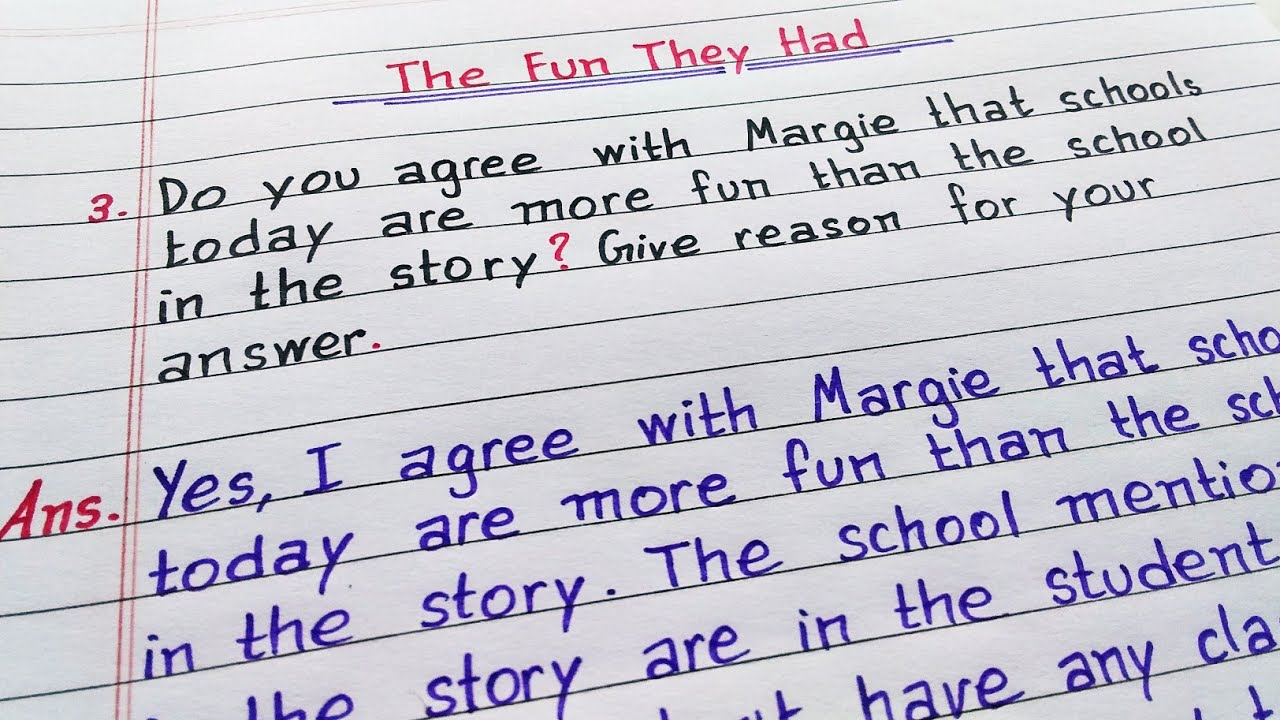 The Fun They Had
3. Do you agree with Margie that schools
today are more fun than the school
in the story? Give reason for your
answer.
Ans. Yes, I agree with Margie that scho
today are more fun than the sch
in the story. The school mentio
the story are in the student
have any cla